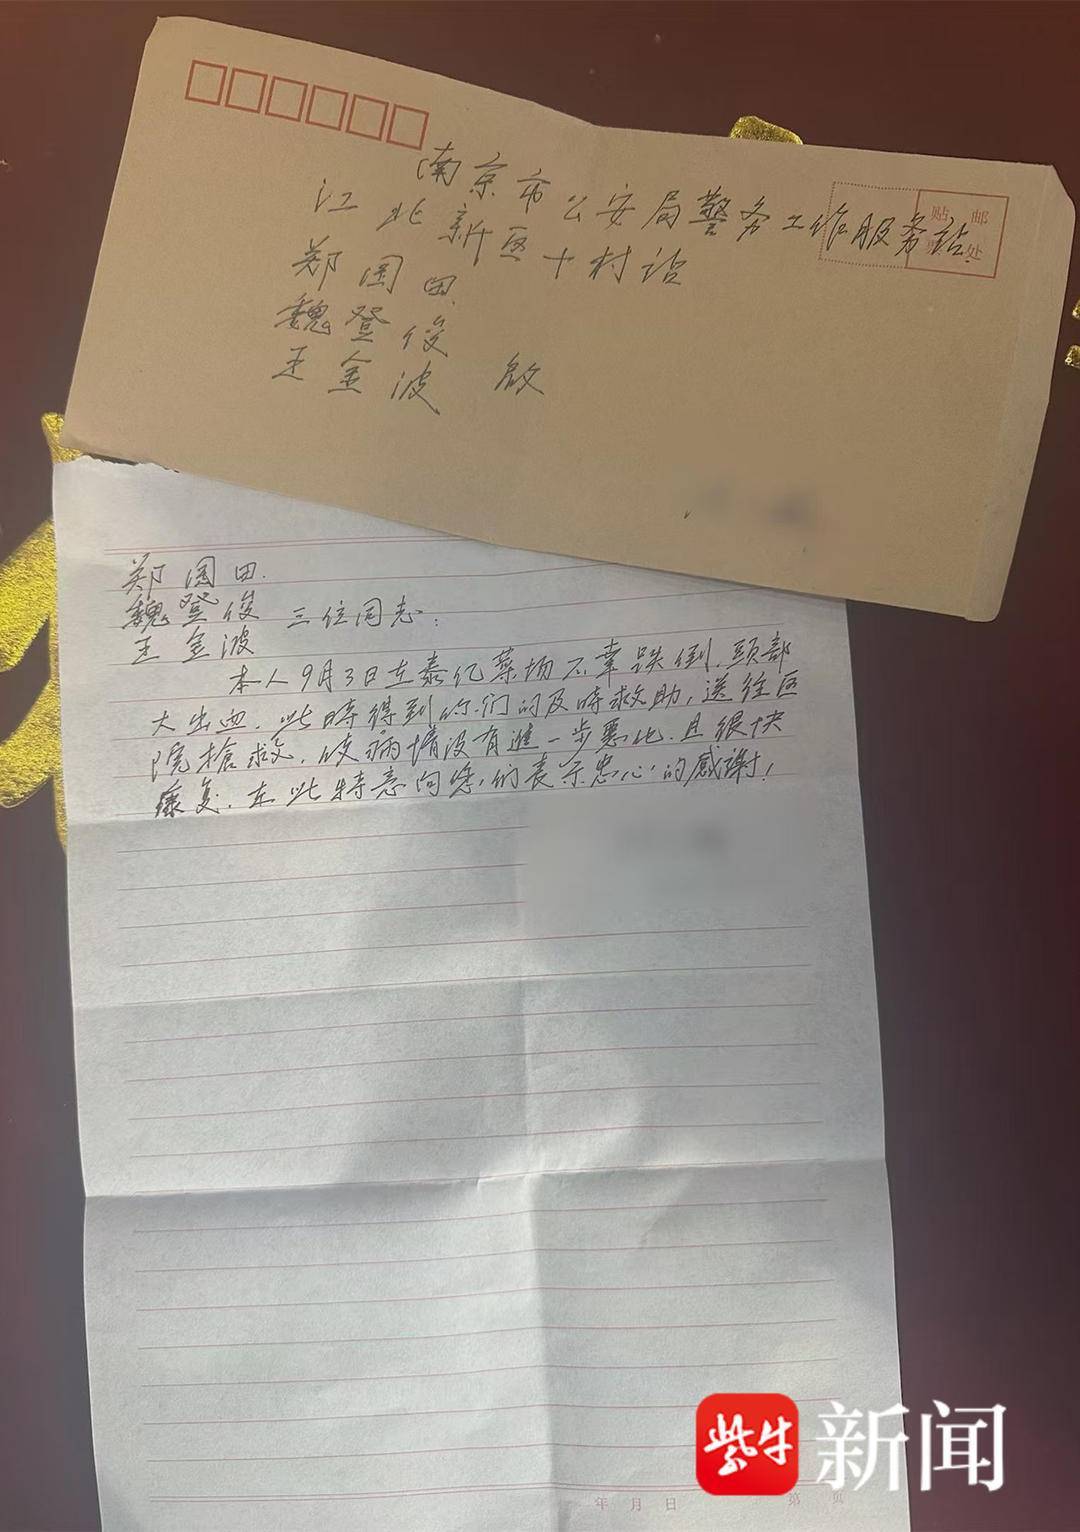 南京市公安局警务工作服务站
江北新区十村诒
贴 邮
处
郑国田
魏登俊
王金波 啟
郑国田.
魏登俊 三位同志:
王金波
本人9月3日在泰亿菜场不幸跌倒.頭部
大出血.此時得到你们的及時救助,送往医
院搶救.使病情没有進一步惡化.且很快
康复.在此特意向您们表示忠心的感谢!
年 月 日
第 页
紫牛 新闻